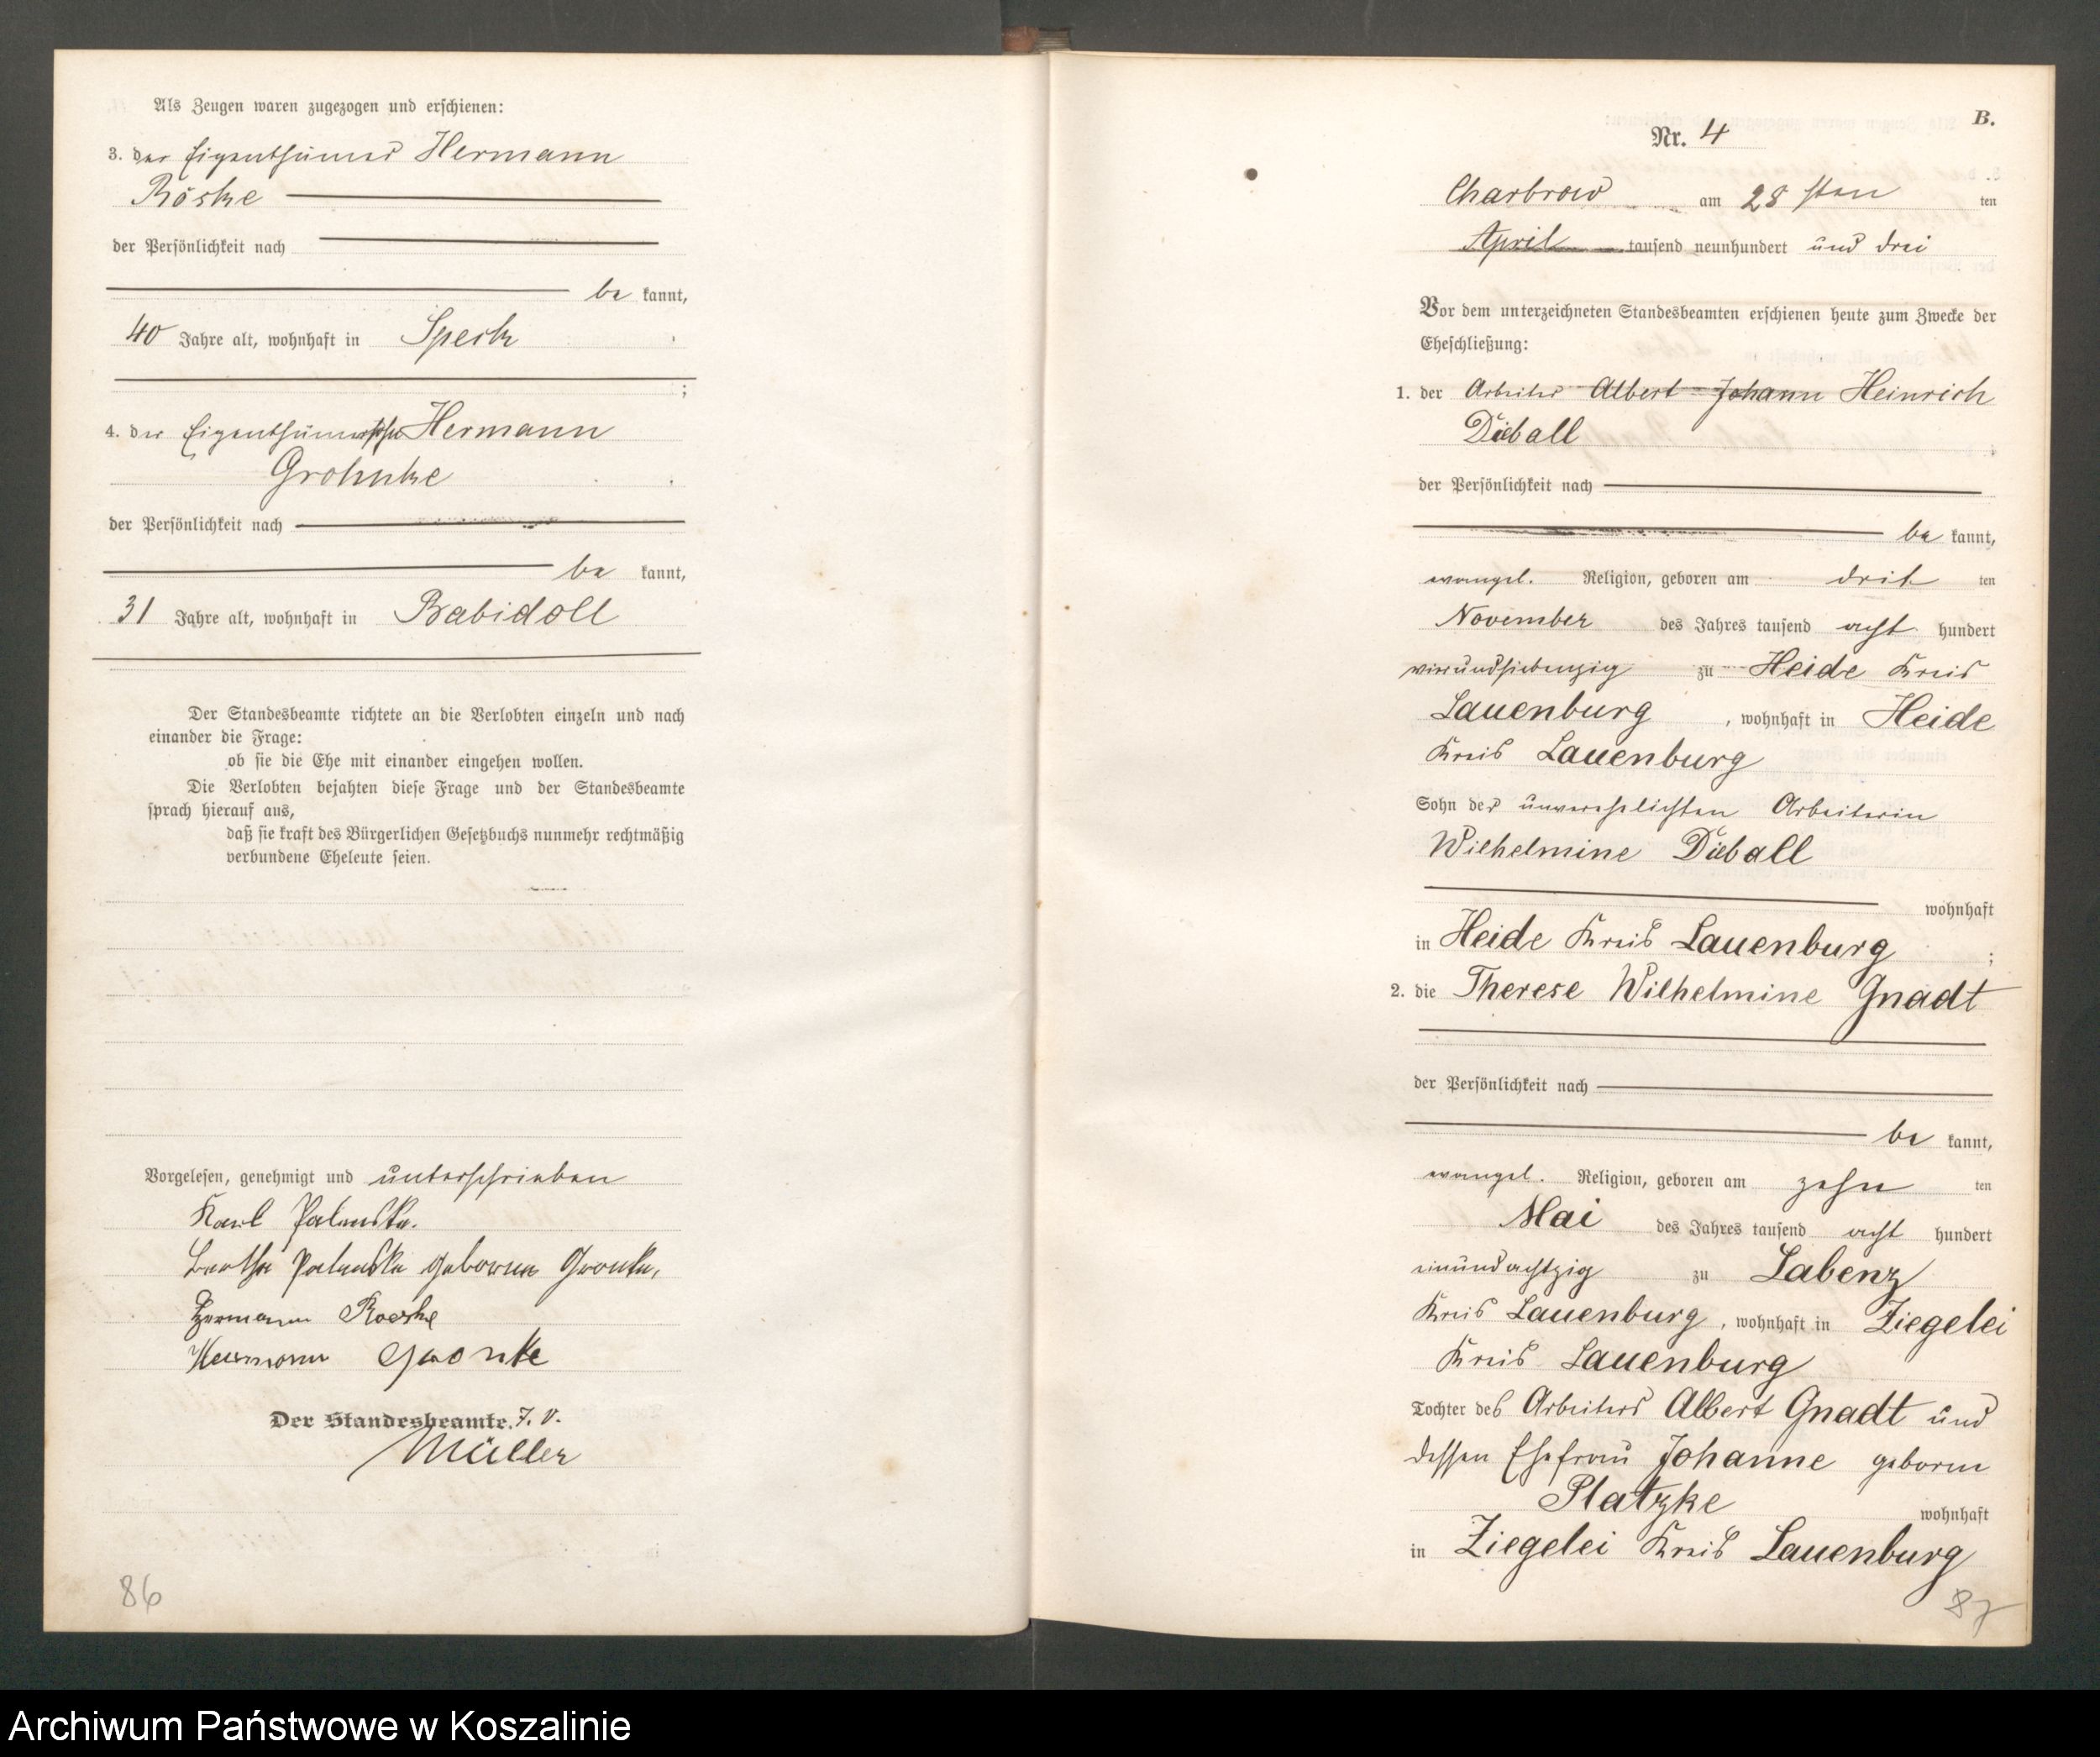 Als Zeugen waren zugezogen und erschienen:
3. der Eigenthümer Hermann
Röske
der Persönlichkeit nach
be kannt,
40 Jahre alt, wohnhaft in Speck
;
4. der Hermann
Grohnke
der Persönlichkeit nach
be kannt,
31 Jahre alt, wohnhaft in Babidoll
Der Standesbeamte richtete an die Verlobten einzeln und nach
einander die Frage:
ob sie die Ehe mit einander eingehen wollen.
Die Verlobten bejahten diese Frage und der Standesbeamte
sprach hierauf aus,
daß sie kraft des Bürgerlichen Gesetzbuchs nunmehr rechtmäßig
verbundene Eheleute seien.
Vorgelesen, genehmigt und unterschrieben
Karl
Bertha geborene
Hermann Roeske
Hermann Gronke
Der Standesbeamte. J. V.
Müller
86
B.
Nr. 4
Charbrow am 28 sten ten
April tausend neunhundert und drei
Vor dem unterzeichneten Standesbeamten erschienen heute zum Zwecke der
Eheschließung:
1. der Arbeiter Albert Johann Heinrich
Dieball
der Persönlichkeit nach
be kannt,
evangel. Religion, geboren am drit ten
November des Jahres tausend acht hundert
vierundsiebenzig zu Heide Kreis
Lauenburg , wohnhaft in Heide
Kreis Lauenburg
Sohn der unverehelichten Arbeiterin
Wilhelmine Dieball
wohnhaft
in Heide Kreis Lauenburg ;
2. die Therese Wilhelmine Gnadt
der Persönlichkeit nach
be kannt,
evangel. Religion, geboren am zehn ten
Mai des Jahres tausend acht hundert
einundachtzig zu Labenz
Kreis Lauenburg , wohnhaft in Ziegelei
Kreis Lauenburg
Tochter des Arbeiters Albert Gnadt und
dessen Ehefrau Johanne geboren
Platzke wohnhaft
in Ziegelei Kreis Lauenburg
87
Archiwum Państwowe w Koszalinie